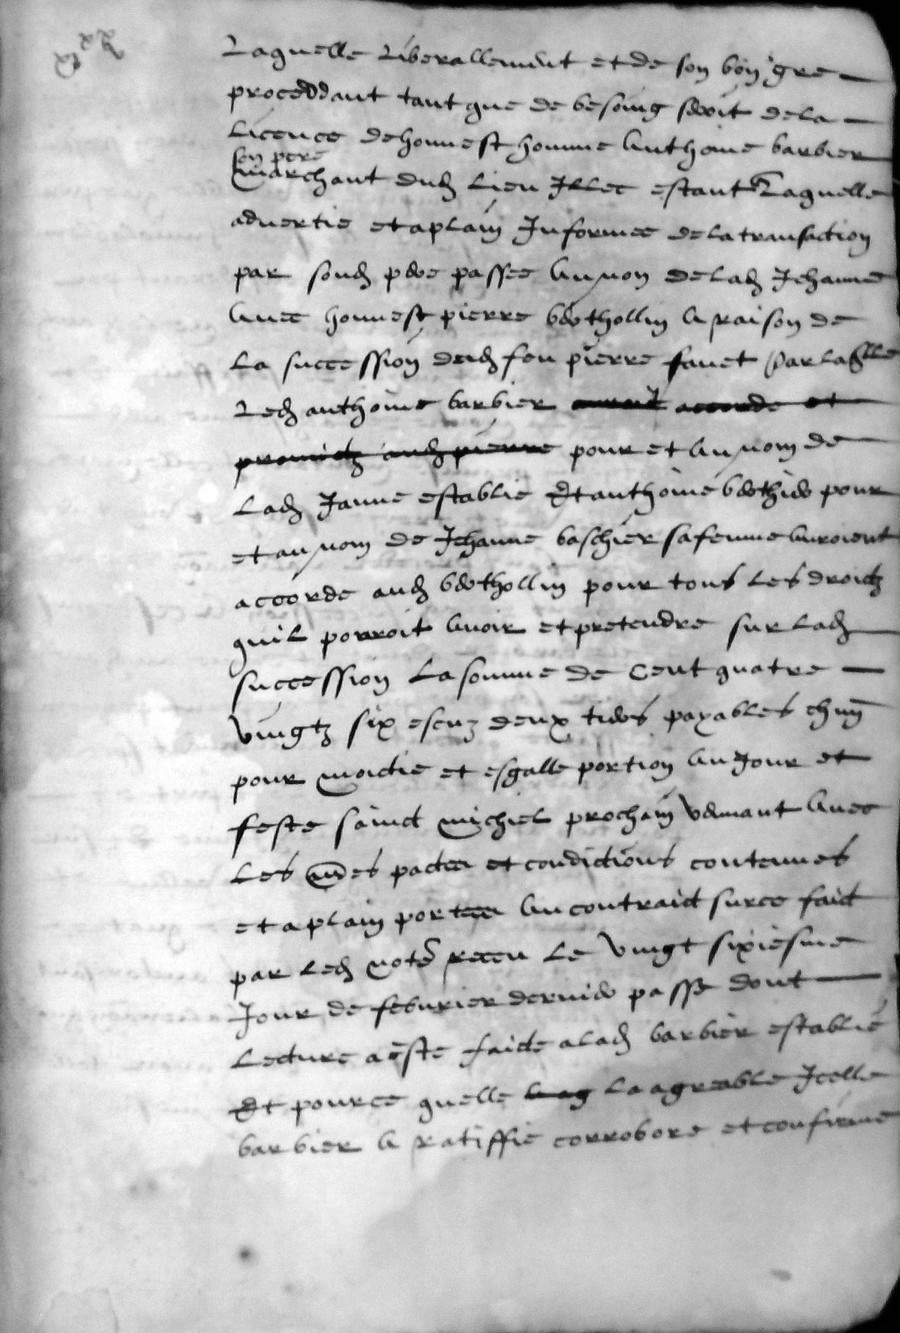 Laquelle liberallement et de son bon gre
proceddant tant que de besoing seroit de la
licence de honnest homme Anthoine barbier
son pere
marchant dud lieu Illec estant Laquelle
advertie et a plain Informee de la transaction
par sond pere passee au nom de lad Jehanne
avec honnest pierre berthollin a raison de
la succession dud feu pierre favet par laqlle
led anthoine barbier auroit accorde et
promictz aud pierre pour et au nom de
lad Janne establie Et anthoine berthier pour
et au nom de Jehanne baschier sa femme auroient
accorde aud berthollin pour tous les droictz
quil porroit avoir et pretendre sur lad
succession la somme de Cent quatre
vingtz six escuz deux tiers payables chun
pour moictie et esgalle portion au Jour et
feste sainct michiel prochain venant avec
les mes pactes et condictions contenues
et a plain portees au contraict sur ce faict
par led notre receu le vingt sixiesme
Jour de febvrier dernier passe dont
lecture a este faicte a lad barbier establie
Et pource quelle la agreable Icelle
barbier a ratiffie corrobore et confirme